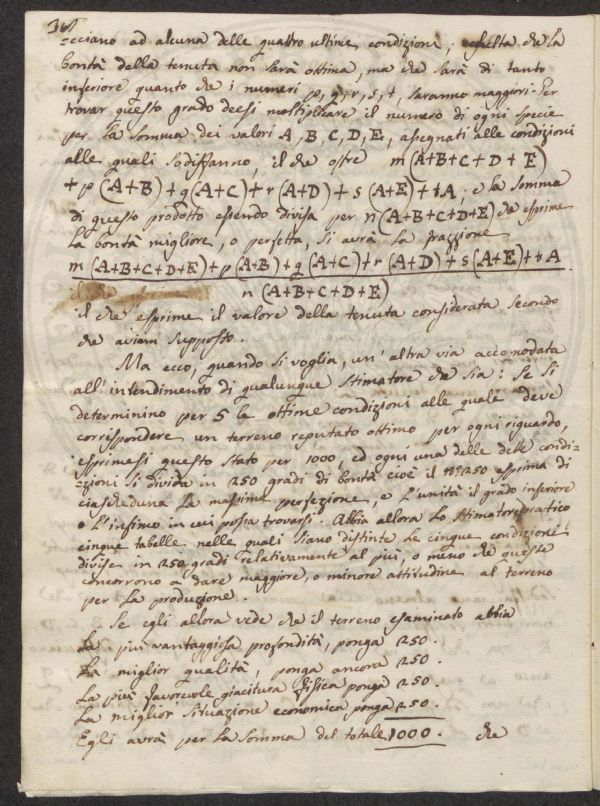 =cciano ad alcuna delle quattro ultime condizioni; che la
bontà della tenuta non sarà ottima, ma che sarà di tanto
inferiore quanto che i numeri p, q, r, s, t, saranno maggiori. Per
trovar questo grado deesi moltiplicare il numero di ogni specie
per la somma dei valori A, B, C, D, E, assegnati alle condizioni
alle quali sodisfanno, il che offre m(A+B+C+D+E)
+p(A+B)+q(A+C)+r(A+D)+s(A+E)+tA; e la somma
di questo prodotto essendo divisa per n(A+B+C+D+E) che esprime
la bontà migliore, o perfetta, si avrà la frazione
m(A+B+C+D+E)+p(A+B)+q(A+C)+r(A+D)+s(A+E)+tA
n(A+B+C+D+E)
il che esprime il valore della tenuta considerata secondo
che aviam supposto.
Ma ecco, quando si voglia, un'altra via accomodata
all'intendimento di qualunque stimatore che sia: Se si
determinino per 5 le ottime condizioni alle quali deve
corrispondere un terreno reputato ottimo per ogni riguardo,
esprimesi questo stato per 1000 ed ogni una delle dette condi=
=zioni si divida in 250 gradi di bontà cioè il nº 250 esprima di
ciascheduna la massima perfezione, e l'unità il grado inferiore
o l'infimo in cui possa trovarsi. Abbia allora lo stimatore pratico
cinque tabelle nelle quali siano distinte le cinque condizioni
divise in 250 gradi relativamente al più, o meno che queste
concorrono a dare maggiore, o minore attitudine al terreno
per la produzione.
Se egli allora vede che il terreno esaminato abbia
la più vantaggiosa profondità, ponga 250.
La miglior qualità ponga ancora 250.
La più favorevole giacitura fisica ponga 250.
La miglior situazione economica ponga 250.
Egli avrà per la somma del totale 1000. che